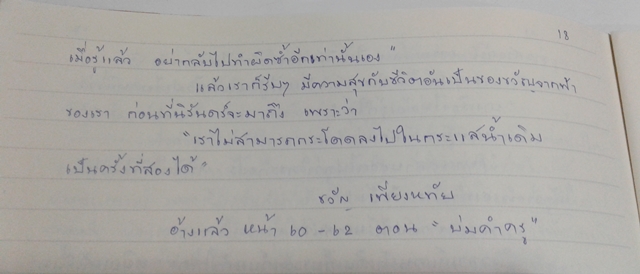 18
เมื่อรู้แล้ว อย่ากลับไปทำผิดซ้ำอีกเท่านั้นเอง"
แล้วเราก็รีบๆ มีความสุขกับชีวิตอันเป็นของขวัญจากฟ้า
ของเรา ก่อนที่นิรันดร์จะมาถึง เพราะว่า
"เราไม่สามารถกระโดดลงไปในกระแสน้ำเดิม
เป็นครั้งที่สองได้"
ขวัญ เพียงหทัย
อ้างแล้ว หน้า ๖๐ - ๖๒ ตอน "บ่มคำครู"